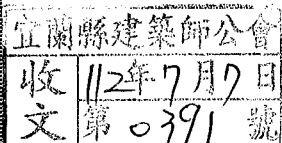 宜蘭縣建築師公會
收 112年7月7日
文 第0391號